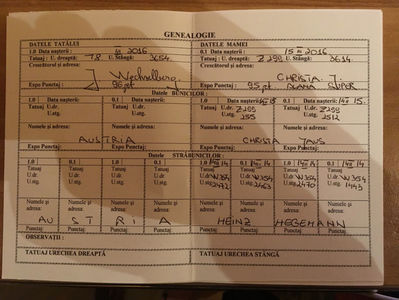 GENEALOGIE
DATELE TATĂLUI
DATELE MAMEI
1.0 Data nașterii: III 2016
0.1 Data nașterii: 15 III 2016
Tatuaj: U. dreaptă: 78 U. Stângă: 3654.
Tatuaj: U. dreaptă: Z 298 U. Stângă: 3614.
Crescătorul și adresa:
Crescătorul și adresa:
J. Wechselberg.
CHRISTA J.
Expo Punctaj: 96 pt
Expo Punctaj: 95 pt. SUPER
Datele BUNICILOR :
1.0 Data nașterii:
0.1 Data nașterii:
1.0 Data nașterii: 15
0.1 Data nașterii: 15.
Tatuaj
U.dr.
U.stg.
Tatuaj
U.dr.
U.stg.
Tatuaj
U.dr. Z 298
U.stg. 255
Tatuaj
U.dr. Z 298
U.stg. 2512
Numele și adresa:
Numele și adresa:
Numele și adresa:
Numele și adresa:
AUSTRIA
CHRISTA JAUS
Expo Punctaj:
Expo Punctaj:
Expo Punctaj:
Expo Punctaj:
Datele STRĂBUNICILOR :
1.0 0.1 1.0 0.1 1.0 14 0.1 14 1.0 14 0.1 14
Tatuaj Tatuaj Tatuaj Tatuaj Tatuaj Tatuaj Tatuaj Tatuaj
U.dr. U.dr. U.dr. U.dr. U.dr. W354 U.dr. W354 U.dr. W354 U.dr. W354
U.stg. U.stg. U.stg. U.stg. U.stg. 2472 U.stg. 2463 U.stg. 2470 U.stg. 1443
Numele și adresa: Numele și adresa: Numele și adresa: Numele și adresa: Numele și adresa: Numele și adresa: Numele și adresa: Numele și adresa:
AUSTRIA
HEINZ HEGEMANN
Punctaj: Punctaj: Punctaj: Punctaj: Punctaj: Punctaj: Punctaj: Punctaj:
OBSERVAȚII :
TATUAJ URECHEA DREAPTĂ
TATUAJ URECHEA STÂNGĂ